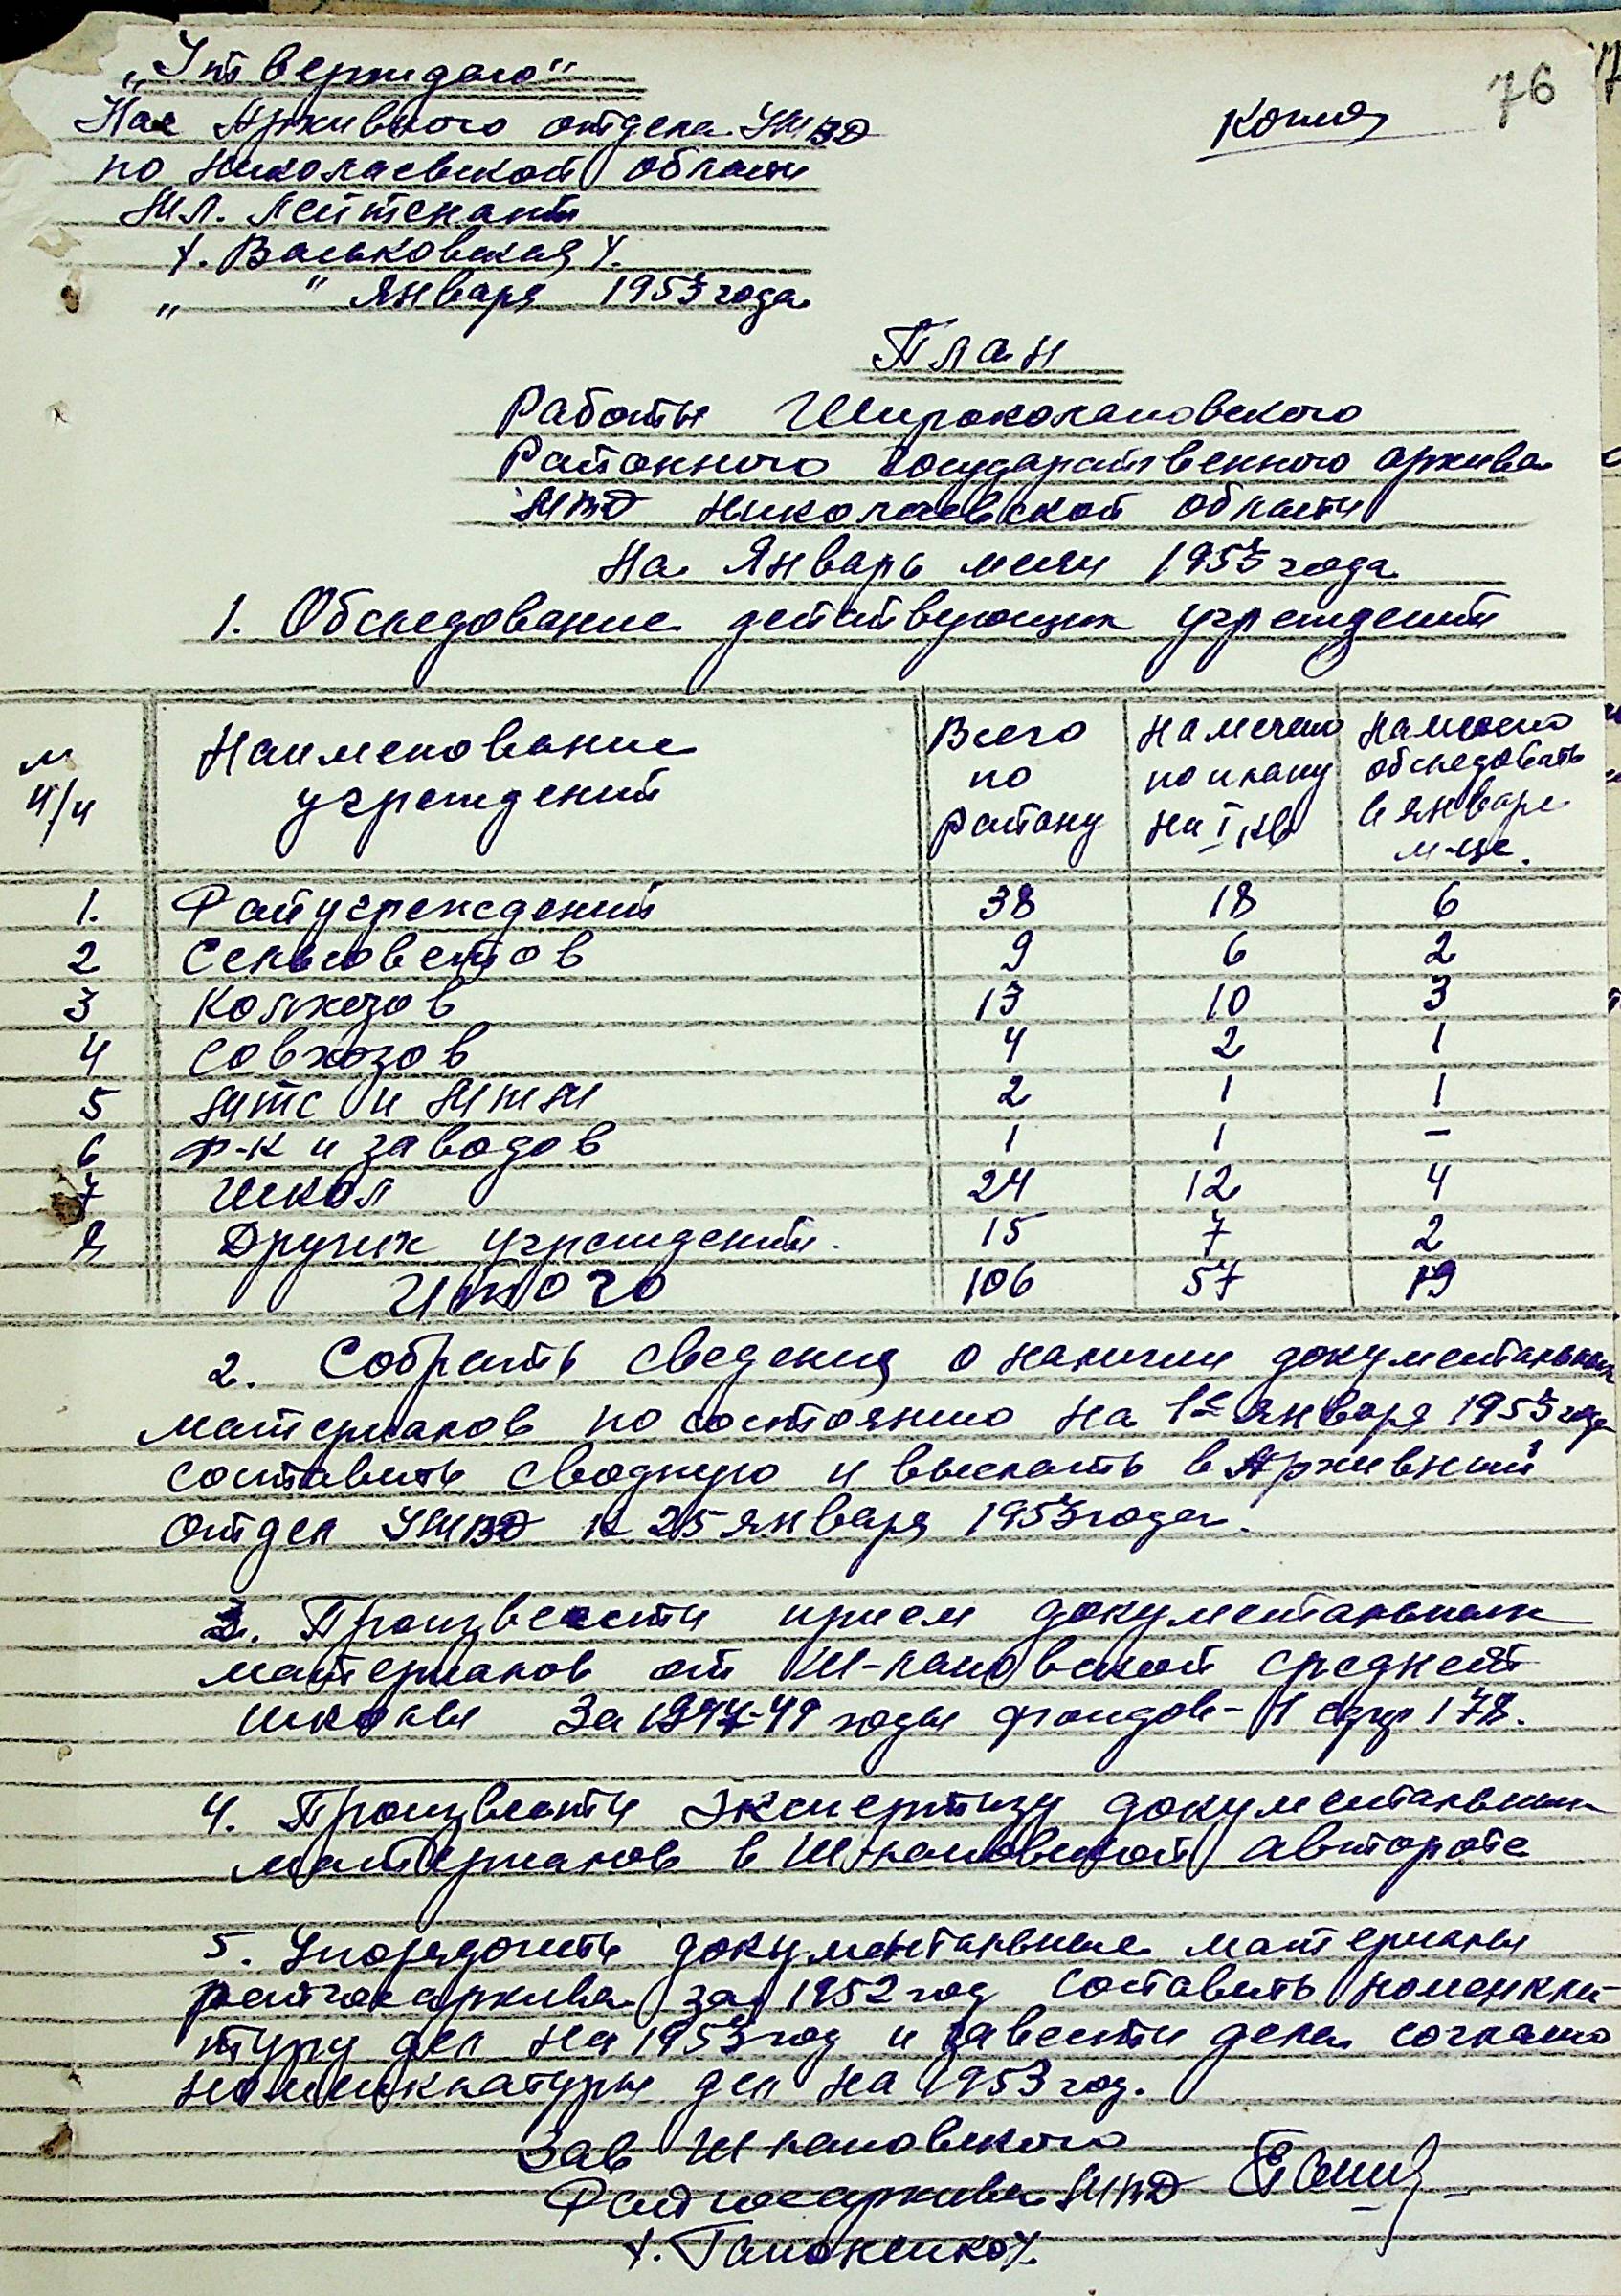 „Утверждаю"
76
Нач Архивного отдела УМВД
Копия
по Николаевской области
Мл. Лейтенант
/. Вольковская /.
„ " Января 1953 года
План
Работы Широколановского
Районного Государственного архива
МВД Николаевской области
на Январь месяц 1953 года
1. Обследование действующих учреждений
№ п/п | Наименование учреждений | Всего по району | Намечено по плану на I кв | Намечено обследовать в январе м-це.
1. Райучреждений 38 18 6
2 Сельсоветов 9 6 2
3 Колхозов 13 10 3
4 Совхозов 4 2 1
5 МТС и МТМ 2 1 1
6 ф-к и заводов 1 1 –
7 Школ 24 12 4
8 Других учреждений. 15 7 2
Итого 106 57 19
2. Собрать сведения о наличии документальных
материалов по состоянию на 1е января 1953 года
составить сводную и выслать в Архивный
отдел УМВД к 25 января 1953 года.
3. Произвести прием документальных
материалов от Ш-лановской средней
школы за 1947-49 годы фондов - 1 ед.хр 178.
4. Произвести экспертизу документальных
материалов в Ш-лановской автороте
5. Упорядочить документальные материалы
райгосархива за 1952 год составить номенкла-
туру дел на 1953 год и завести дела согласно
номенклатуры дел на 1953 год.
Зав Ш лановского
Райгосархива МВД
/. Гапоненко /.